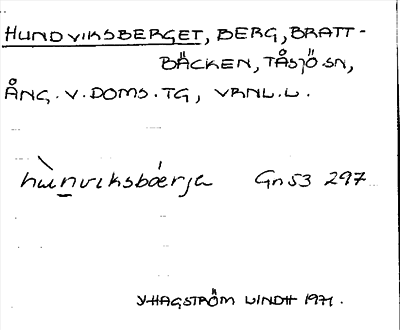 HUNDVIKSBERGET, BERG, BRATT-
BÄCKEN, TÅSJÖ SN,
ÅNG. V. DOMS. TG, VRNL. L.
hùnviksbáerja Gn 53 297
Y. HAGSTRÖM LINDH 1971.